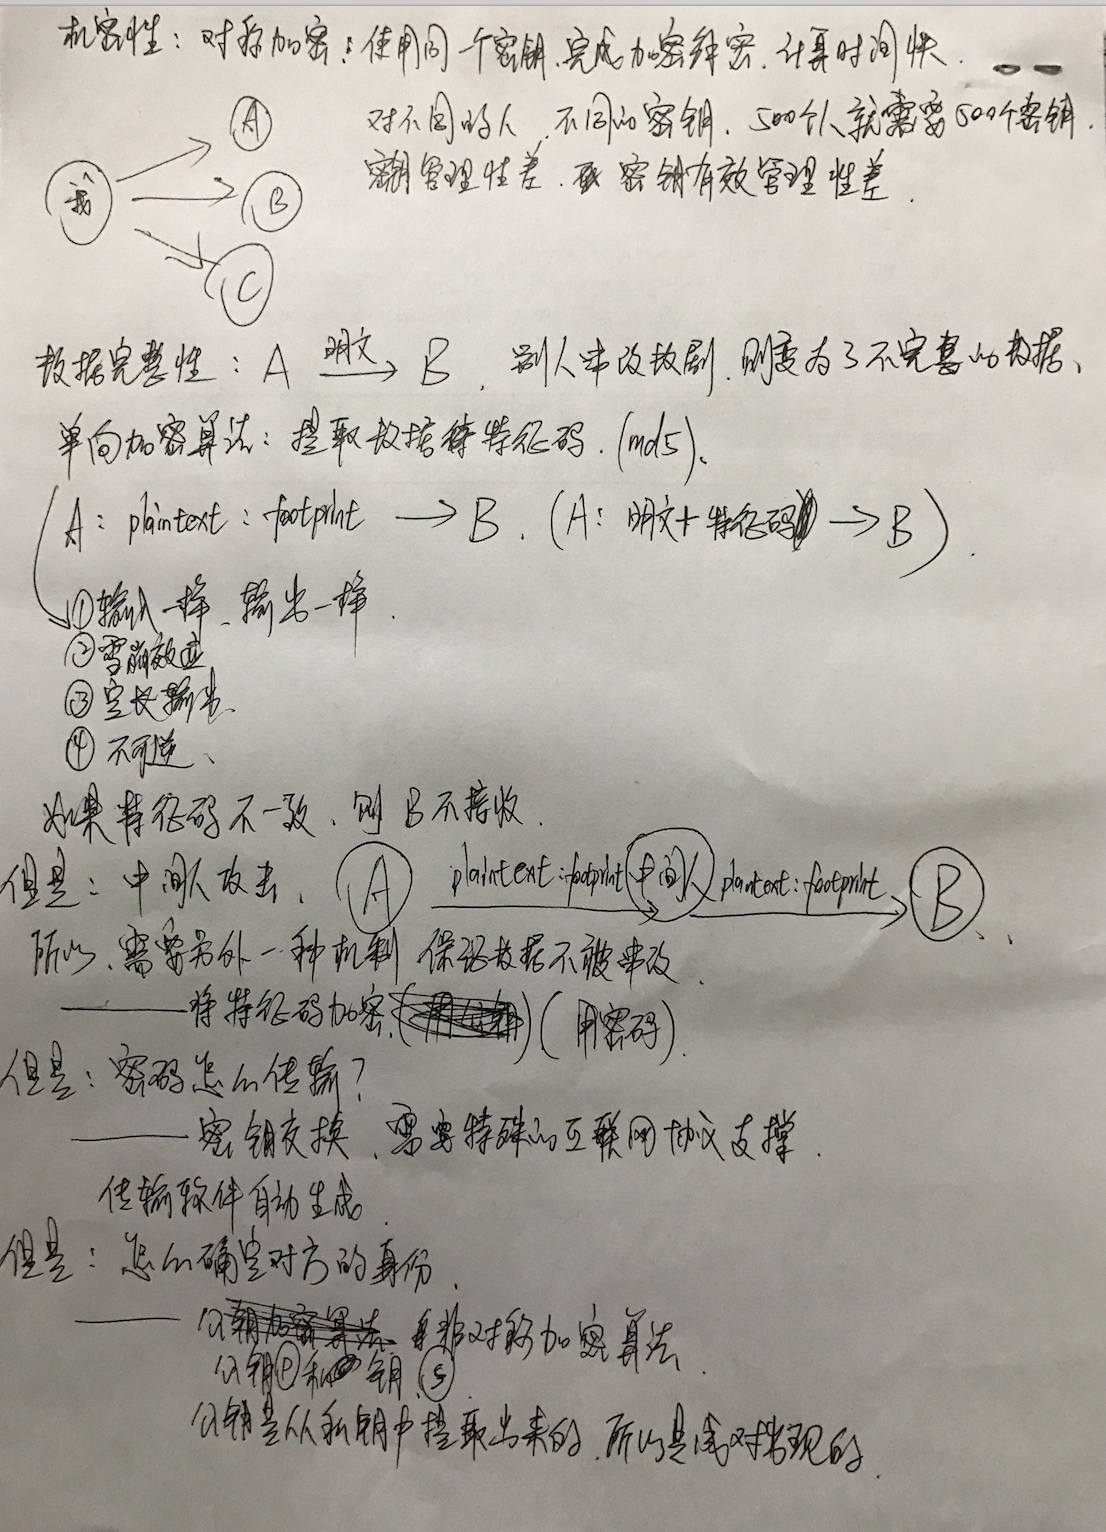 机密性：对称加密：使用同一个密钥，完成加密解密．计算时间快．
A
对不同的人，不同的密钥．500个人就需要500个密钥．
我
B
密钥管理性差．密钥有效管理性差．
C
数据完整性：A 明文→ B．别人串改数剧，则变为了不完整的数据、
单向加密算法：提取数据特征码．(md5)、
A：plaintext：footprint → B．(A：明文+特征码 → B)．
①输入一样、输出一样．
②雪崩效应
③定长输出、
④不可逆、
如果特征码不一致．则B不接收．
但是：中间人攻击．A plaintext:footprint 中间人 plaintext:footprint B、、
所以、需要另外一种机制 保证数据不被串改．
——将特征码加密．(用密码)．
但是：密码怎么传输？
——密钥交换、需要特殊的互联网协议支撑．
传输软件自动生成．
但是：怎么确定对方的身份．
——非对称加密算法．
公钥Ⓟ和 钥Ⓢ．
公钥是从私钥中提取出来的．所以是成对出现的．